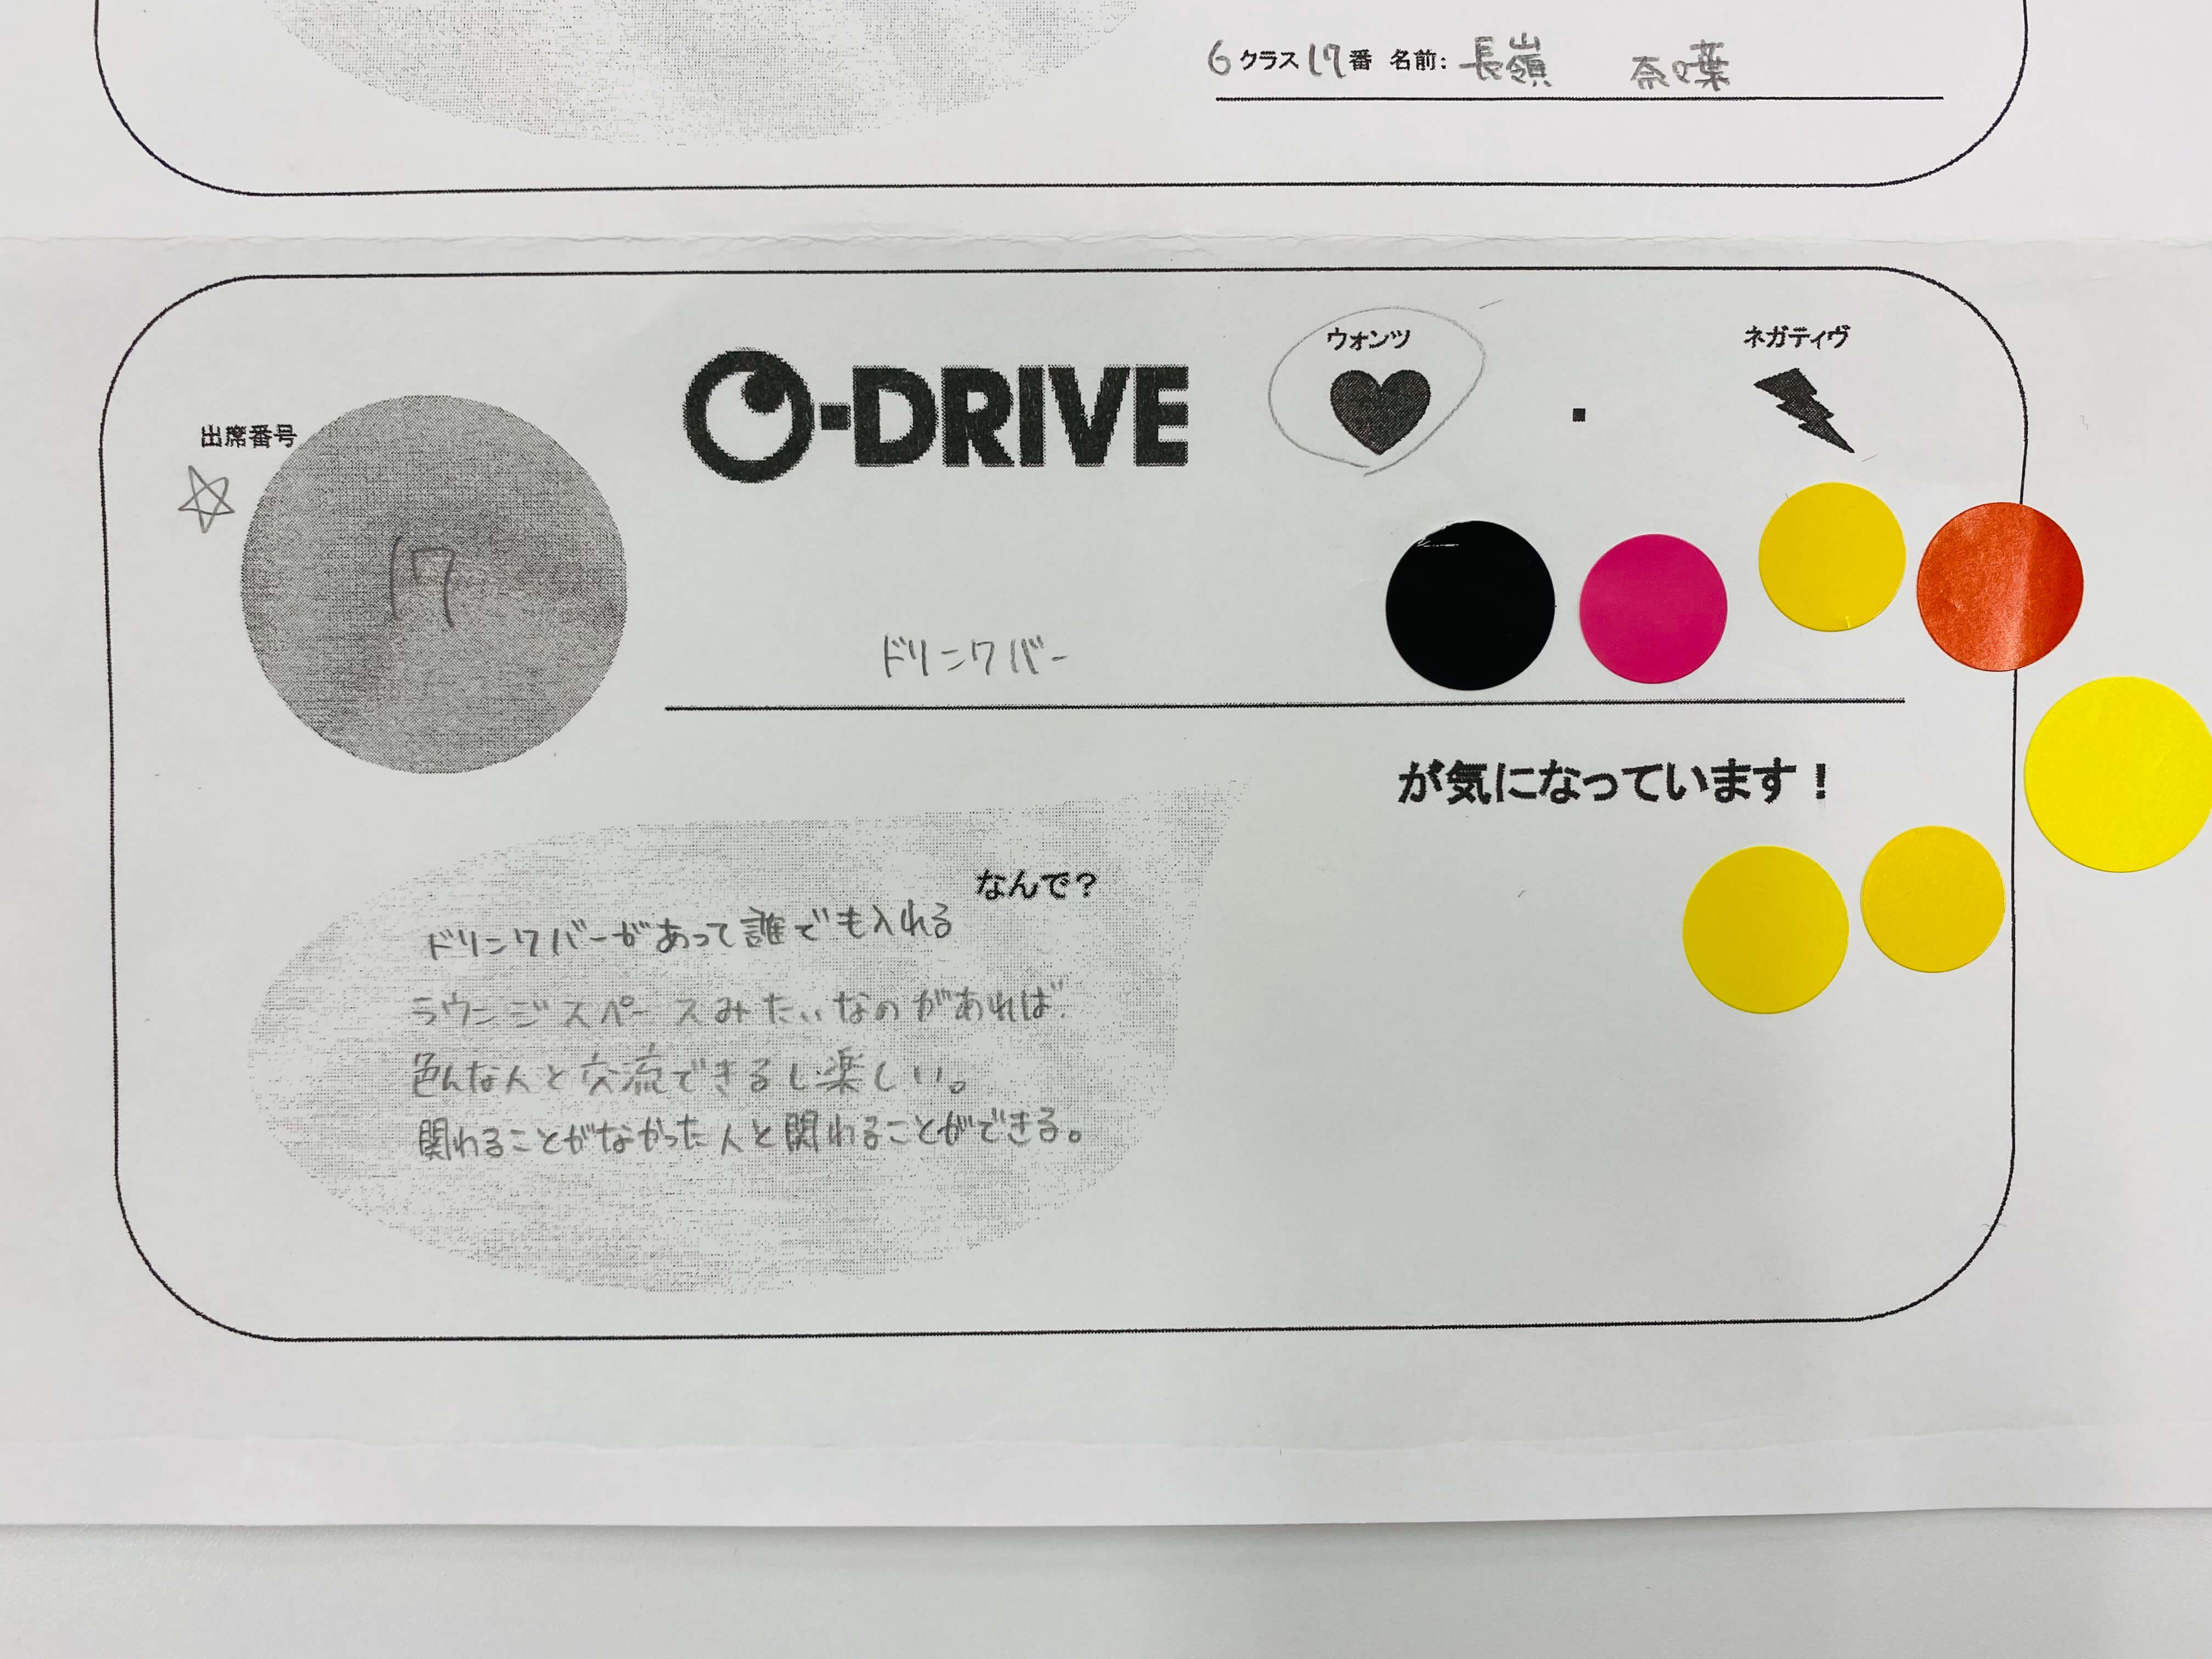 6 クラス 17 番 名前: 長嶺 奈
ウォンツ
ネガティヴ
O-DRIVE
出席番号
17
ドリンクバー
が気になっています！
なんで？
ドリンクバーがあって誰でも入れる
ラウンジスペースみたいなのがあれば
色んな人と交流できるし楽しい。
関わることがなかった人と関わることができる。